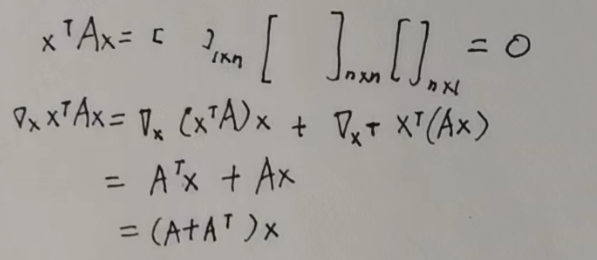 xᵀAx = [ ]₁ₓₙ [ ]ₙₓₙ [ ]ₙₓ₁ = 0
∇ₓ xᵀAx = ∇ₓ (xᵀA)x + ∇ₓᵀ xᵀ(Ax)
= Aᵀx + Ax
= (A+Aᵀ)x